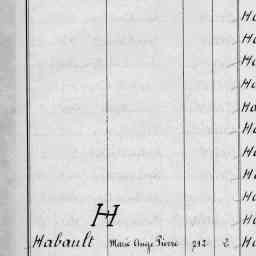 Ha
Ha
Ha
Ha
Ha
Ha
Ha
Ha
Ha
H Ha
Habault Marie Ange Pierre 212 2 Ha